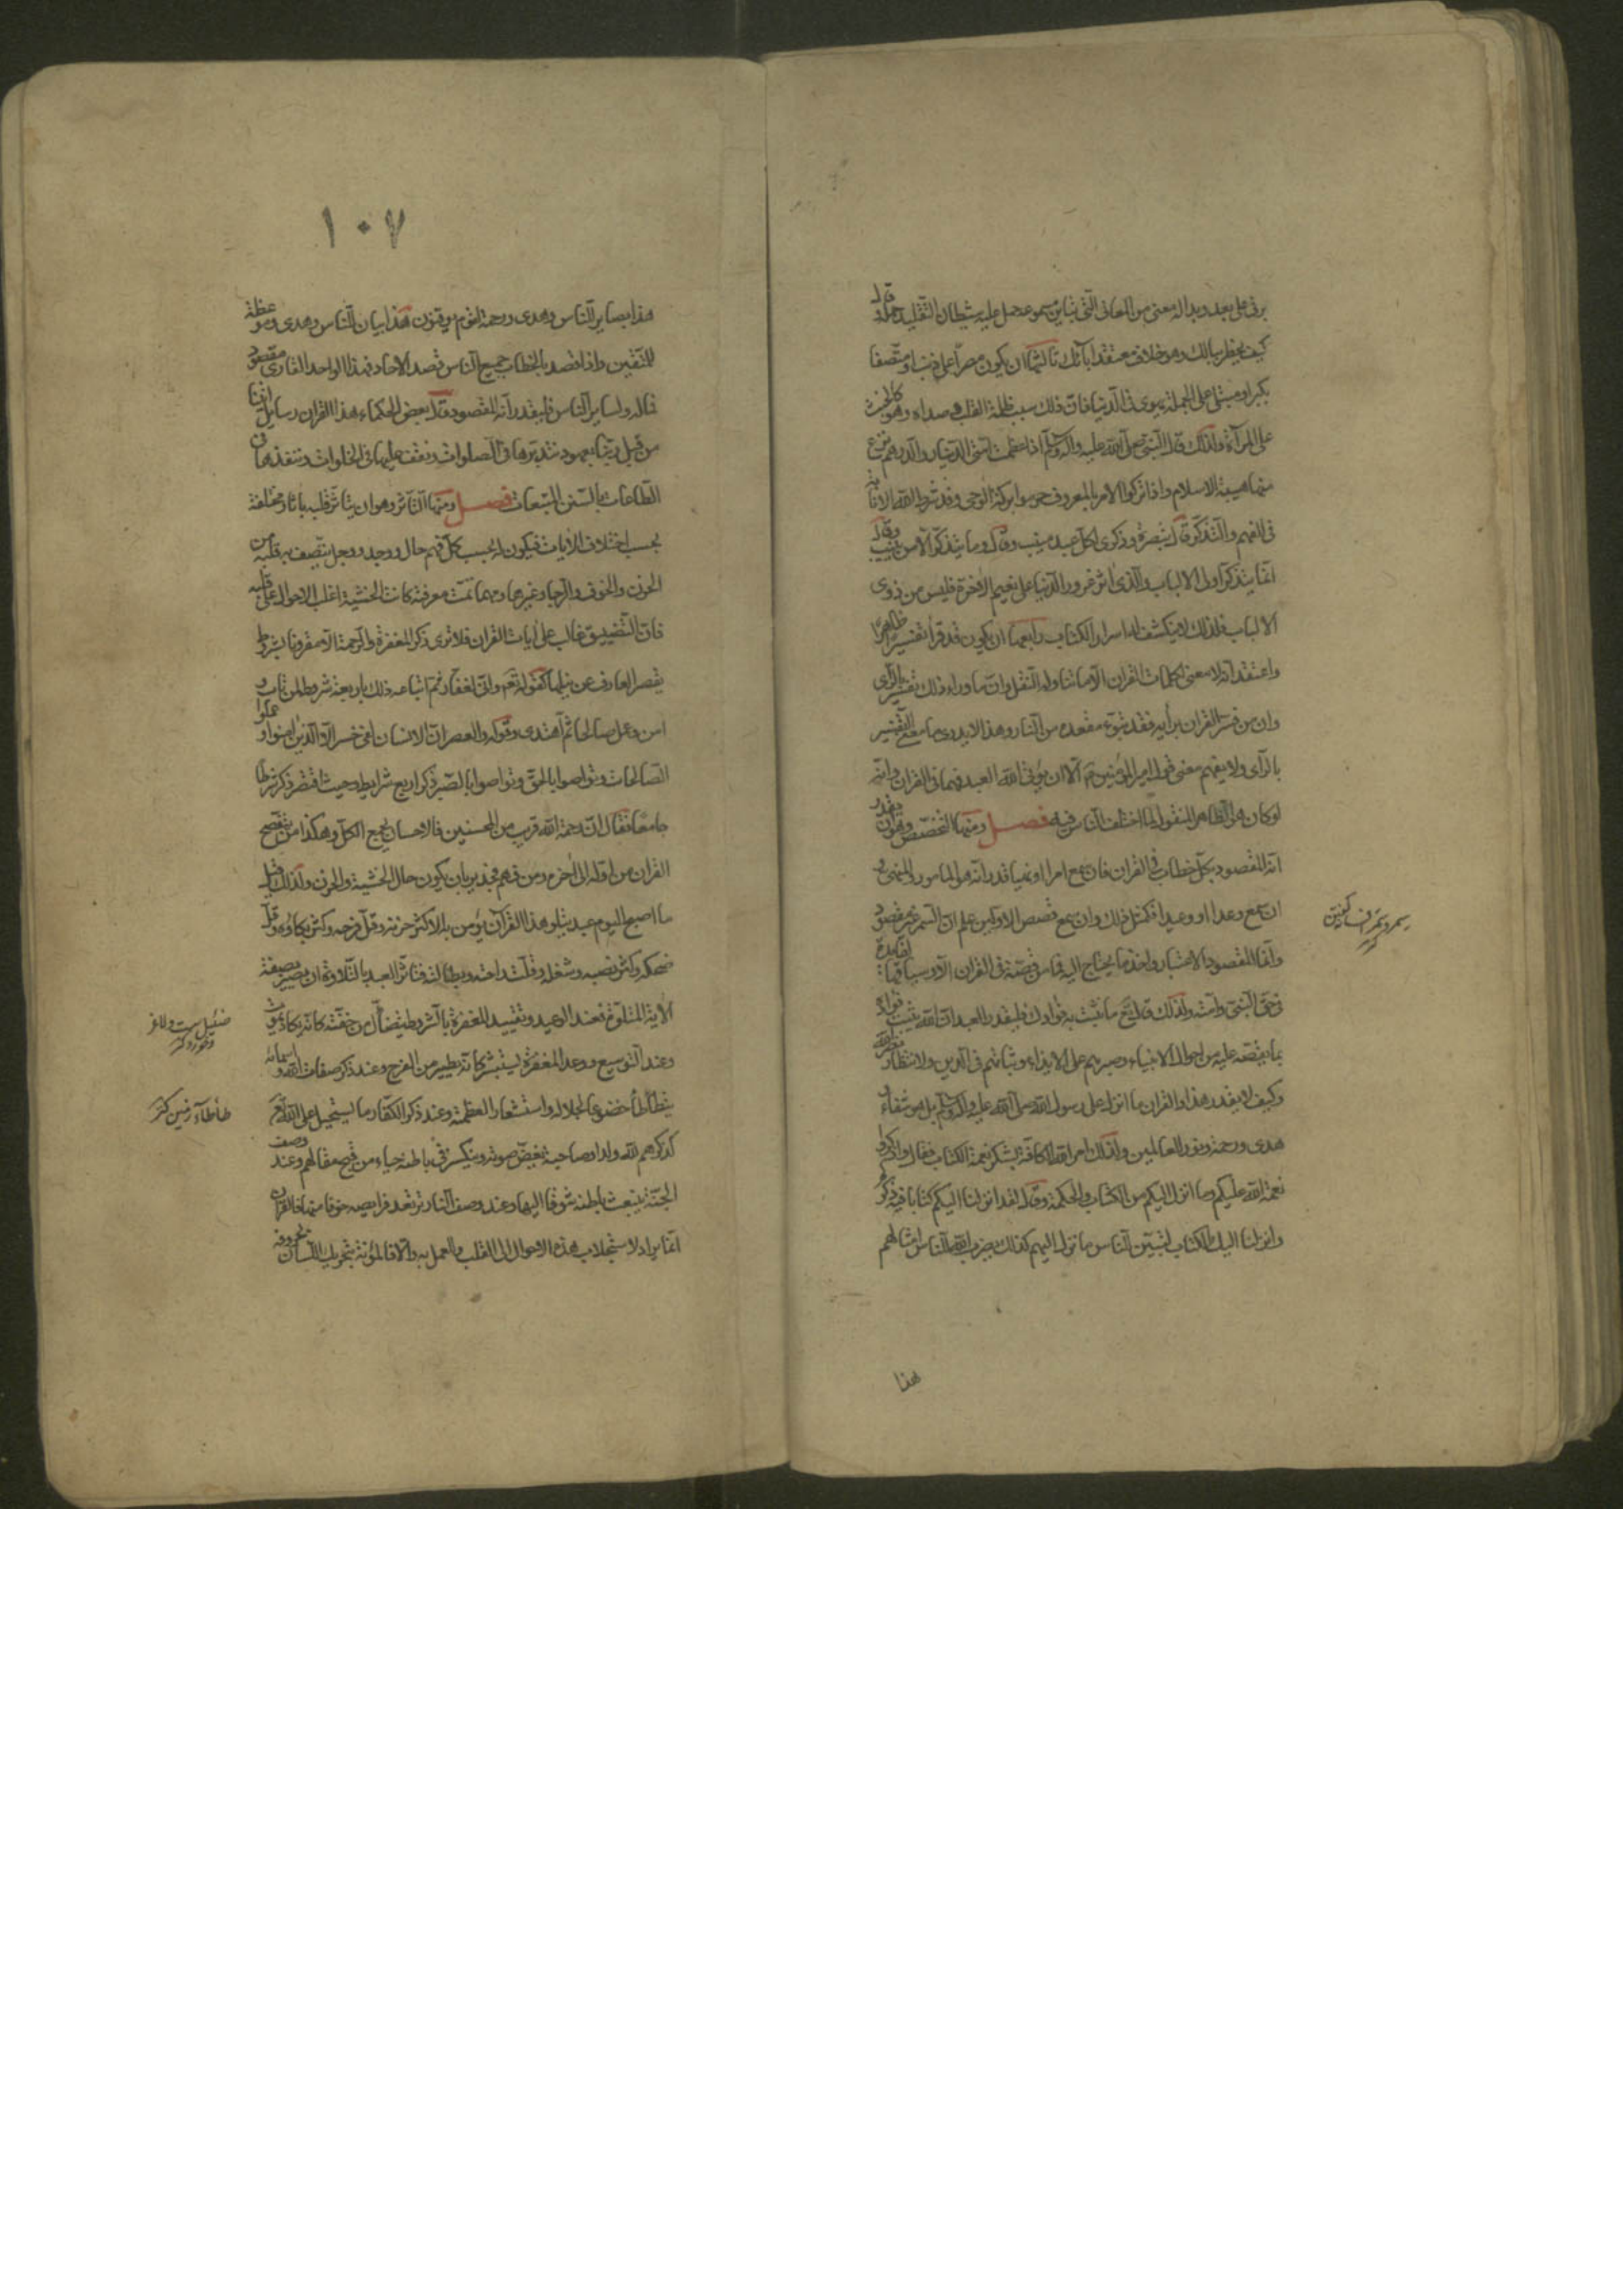 برق علی بعد وبدا له معنی من المعانی التی تباین مسموعه حمل علیه شیطان التقلید حملة وقال
کیف یخطر ببالك وهو خلاف معتقد آبائك ثالثها ان یکون مصرا علی ذنب او متصفا
بکبر او مبتلی علی الجملة بهوی فی الدنیا فان ذلك سبب ظلمة القلب وصداه وهو کالخبث
علی المرآة ولذلك قال النبی صلی الله علیه وآله وسلم اذا عظمت امتی الدینار والدرهم نزع
منها هیبة الاسلام واذا ترکوا الامر بالمعروف حرموا برکة الوحی وقد شرط الله الانابة
فی الفهم والتذکر قال تبصرة وذکری لکل عبد منیب وقال وما یتذکر الا من ینیب وقال
انما یتذکر اولی الالباب والذی اثر غرور الدنیا علی نعیم الآخرة فلیس من ذوی
الالباب فلذلك لا ینکشف له اسرار الکتاب رابعها ان یکون قد قرأ تفسیرا ظاهرا
واعتقد انه لا معنی لکلمات القران الا ما تناوله النقل وان ما وراء ذلك تفسیر بالرأی
وان من فسر القران برأیه فقد تبوء مقعده من النار وهذا لا یدری ما معنی التفسیر
بالرأی ولا یفهم معنی قول امیر المؤمنین الا ان یؤتی الله العبد فهما فی القران وانه
لو کان هو الظاهر المنقول لما اختلف الناس فیه فصل ومنها التخصص وهو ان یقدر
انه المقصود بکل خطاب فی القران فان سمع امرا او نهیا قدر انه هو المامور والمنهی و
ان سمع وعدا او وعیدا فکمثل ذلك وان سمع قصص الاولین علم ان السمر غیر مقصود
وانما المقصود الاعتبار واخذ ما یحتاج الیه فما من قصة فی القران الا وسیاقها لفایدة
فی حق النبی وامته ولذلك قال تع ما نثبت به فوادك فلیقدر العبد ان الله یثبت فواده
بما یقصه علیه من احوال الانبیاء وصبرهم علی الایذاء وثباتهم فی الدین لانتظار نصر الله
وکیف لا یقدر هذا والقران ما انزل علی رسول الله صلی الله علیه وآله وسلم بل هو شفاء و
هدی ورحمة ونور للعالمین ولذلك امر الله الکافة بشکر نعمة الکتاب فقال واذکروا
نعمة الله علیکم وما انزل الیکم من الکتاب والحکمة وقال لقد انزلنا الیکم کتابا فیه ذکرکم
وانزلنا الیك الکتاب لتبین للناس ما نزل الیهم کذلك یضرب الله للناس امثالهم
هذا
١٠٧
هذا بصایر للناس وهدی ورحمة لقوم یوقنون هذا بیان للناس وهدی وموعظة
للمتقین واذا قصد بالخطاب جمیع الناس قصد الاحاد فهذا الواحد القاری مقصود
فماله ولسایر الناس فلیقدر انه المقصود قال بعض الحکماء هذا القران رسایل اتتنا
من قبل ربنا بعهوده نتدبرها فی الصلوات ونقف علیها فی الخلوات وننفذها فی
الطاعات بالسنن المتبعات فصل ومنها التاثر وهو ان یتاثر قلبه باثار مختلفة
بحسب اختلاف الایات فیکون له بحسب کل فهم حال ووجد وجل یتصف به قلبه من
الحزن والخوف والرجا وغیرها ومهما تمت معرفته کانت الخشیة اغلب الاحوال علی قلبه
فان التضییق غالب علی ایات القران فلا تری ذکر المغفرة والرحمة الا مقرونا بشروط
یقصر العارف عن نیلها کقوله تع وانی لغفار ثم اتباعه ذلك باربعة شروط لمن تاب و
امن وعمل صالحا ثم اهتدی وقوله والعصر ان الانسان لفی خسر الا الذین امنوا وعملوا
الصالحات وتواصوا بالحق وتواصوا بالصبر ذکر اربع شرایط وحیث اقتصر ذکر شرطا
جامعا فقال ان رحمة الله قریب من المحسنین فالاحسان یجمع الکل وهکذا من یتصفح
القران من اوله الی آخره ومن فهمه فجدیر بان یکون حال الخشیة والحزن ولذلك قیل
ما اصبح الیوم عبد یتلو هذا القرآن یؤمن به الا کثر حزنه وقل فرحه وکثر بکاؤه وقل
ضحکه وکثر نصبه وشغله وقلت راحته وبطالته فتاثر العبد بالتلاوة ان یصیر بصفة
الآیة المتلوة فعند الوعید وتقیید المغفرة بالشروط یتضأل من خفته کانه یکاد یموت
وعند التوسیع ووعد المغفرة یستبشر کانه یطیر من الفرح وعند ذکر صفات الله واسمائه
یتطأطأ خضوعا لجلاله واستشعارا لعظمته وعند ذکر الکفار ما یستحیل علی الله تع
کذکرهم لله ولدا وصاحبة یغض صوته وینکسر فی باطنه حیاء من قبح مقالهم وعند وصف
الجنة ینبعث بباطنه شوقا الیها وعند وصف النار ترتعد فرایصه خوفا منها فالقران
انما یراد لاستجلاب هذه الاحوال الی القلب والعمل به والا فالمؤنة بتحریك اللسان بحروفه